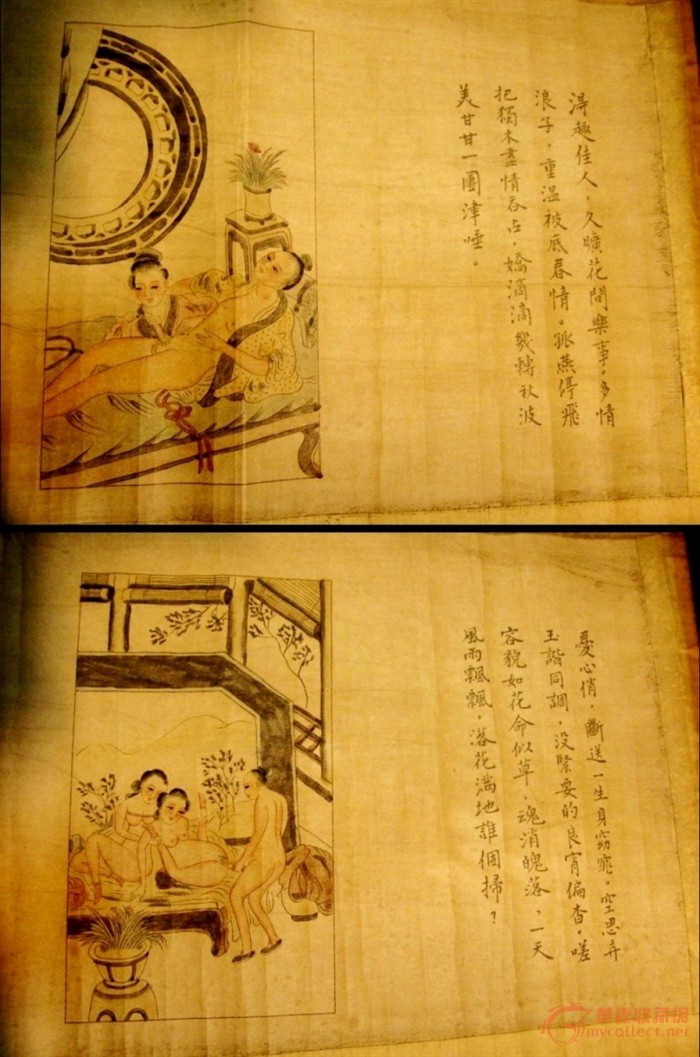 淂趣佳人，久曠花間樂事。多情
浪子，重温被底春情。孤燕停飛
把獨木盡情吞占，嬌滴滴幾轉秋波
美甘甘一團津唾。
憂心俏，斷送一生身窈窕。空思弄
玉諧同調，没緊要的良宵偏杳。嗟
容貌如花命似草，魂消魄落，一天
風雨飄飄，落花滿地誰個掃？
華夏收藏網
mycollect.net